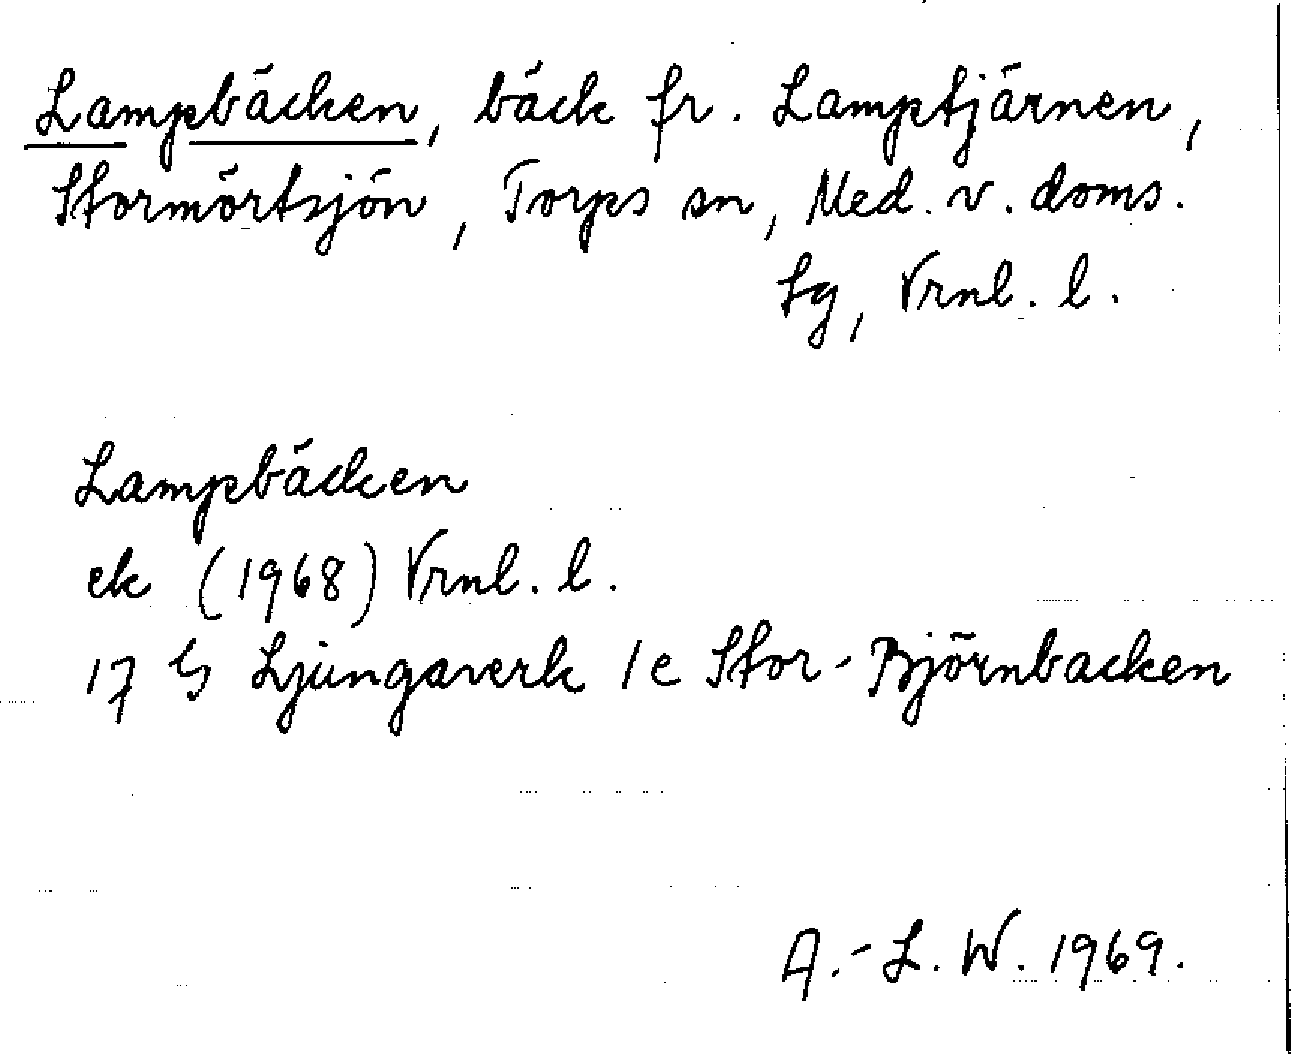 Lampbäcken, bäck fr. Lamptjärnen,
Stormörtsjön, Torps sn, Med. v. doms.
Sg, Vrnl. l.
Lampbäcken
ek (1968) Vrnl. l.
17 G Ljungaverk 1e Stor-Björnbacken
A.-L. W. 1969.